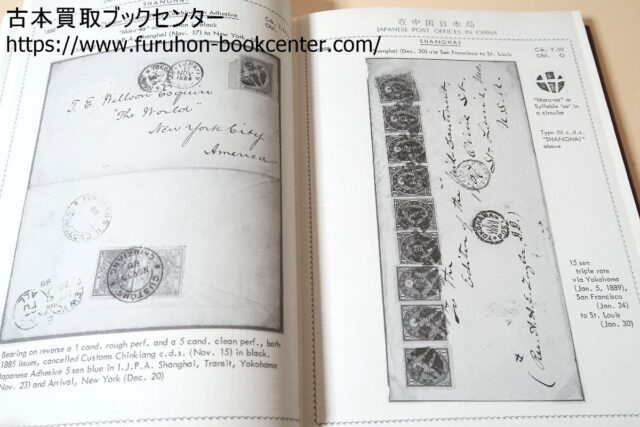 古本買取ブックセンター
https://www.furuhon-bookcenter.com/
Adhesive
"Maru-sa"
black
Shanghai (Nov. 17) to New York
T. E. Willson Esquire
"The World"
New York City
America
CUSTOMS
CHINKIANG
Bearing on reverse a 1 cand. rough perf. and a 5 cand. clean perf., both
1885 issues, cancelled Customs Chinkiang c.d.s. (Nov. 15) in black.
Japanese Adhesive 5 sen blue in I.J.P.A. Shanghai, Transit, Yokohama
Nov. 23) and Arrival, New York (Dec. 20)
在中国日本局
JAPANESE POST OFFICES IN CHINA
SHANGHAI
Shanghai (Dec. 30) via San Francisco to St. Louis
Cds. Y.III
Obl. O
"Maru-sa" or
Syllable "sa" in
a circular
Type III c.d.s.
"SHANGHAI"
above
To the
Editor of the
St. Louis, Mo.
U.S.A.
15 sen
triple rate
via Yokohama
(Jan. 5, 1889),
San Francisco
(Jan. 24)
to St. Louis
(Jan. 30)